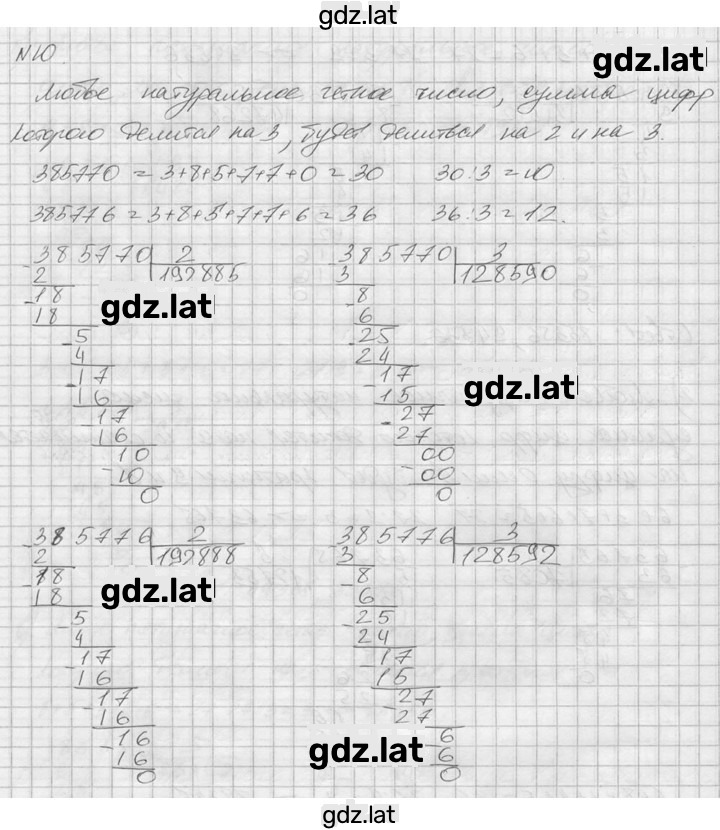 gdz.lat
N10.
gdz.lat
Любое натуральное четное число, сумма цифр
которого делится на 3, будет делиться на 2 и на 3.
385770 = 3+8+5+7+7+0 = 30 30:3 = 10
385776 = 3+8+5+7+7+6 = 36 36:3 = 12.
385770 2
2 192885
18
18
5
4
17
16
17
16
10
10
0
gdz.lat
385770 3
3 128590
8
6
25
24
17
15
27
27
00
00
0
gdz.lat
385776 2
2 192888
18
18
5
4
17
16
17
16
16
16
0
gdz.lat
385776 3
3 128592
8
6
25
24
17
15
27
27
6
6
0
gdz.lat
gdz.lat